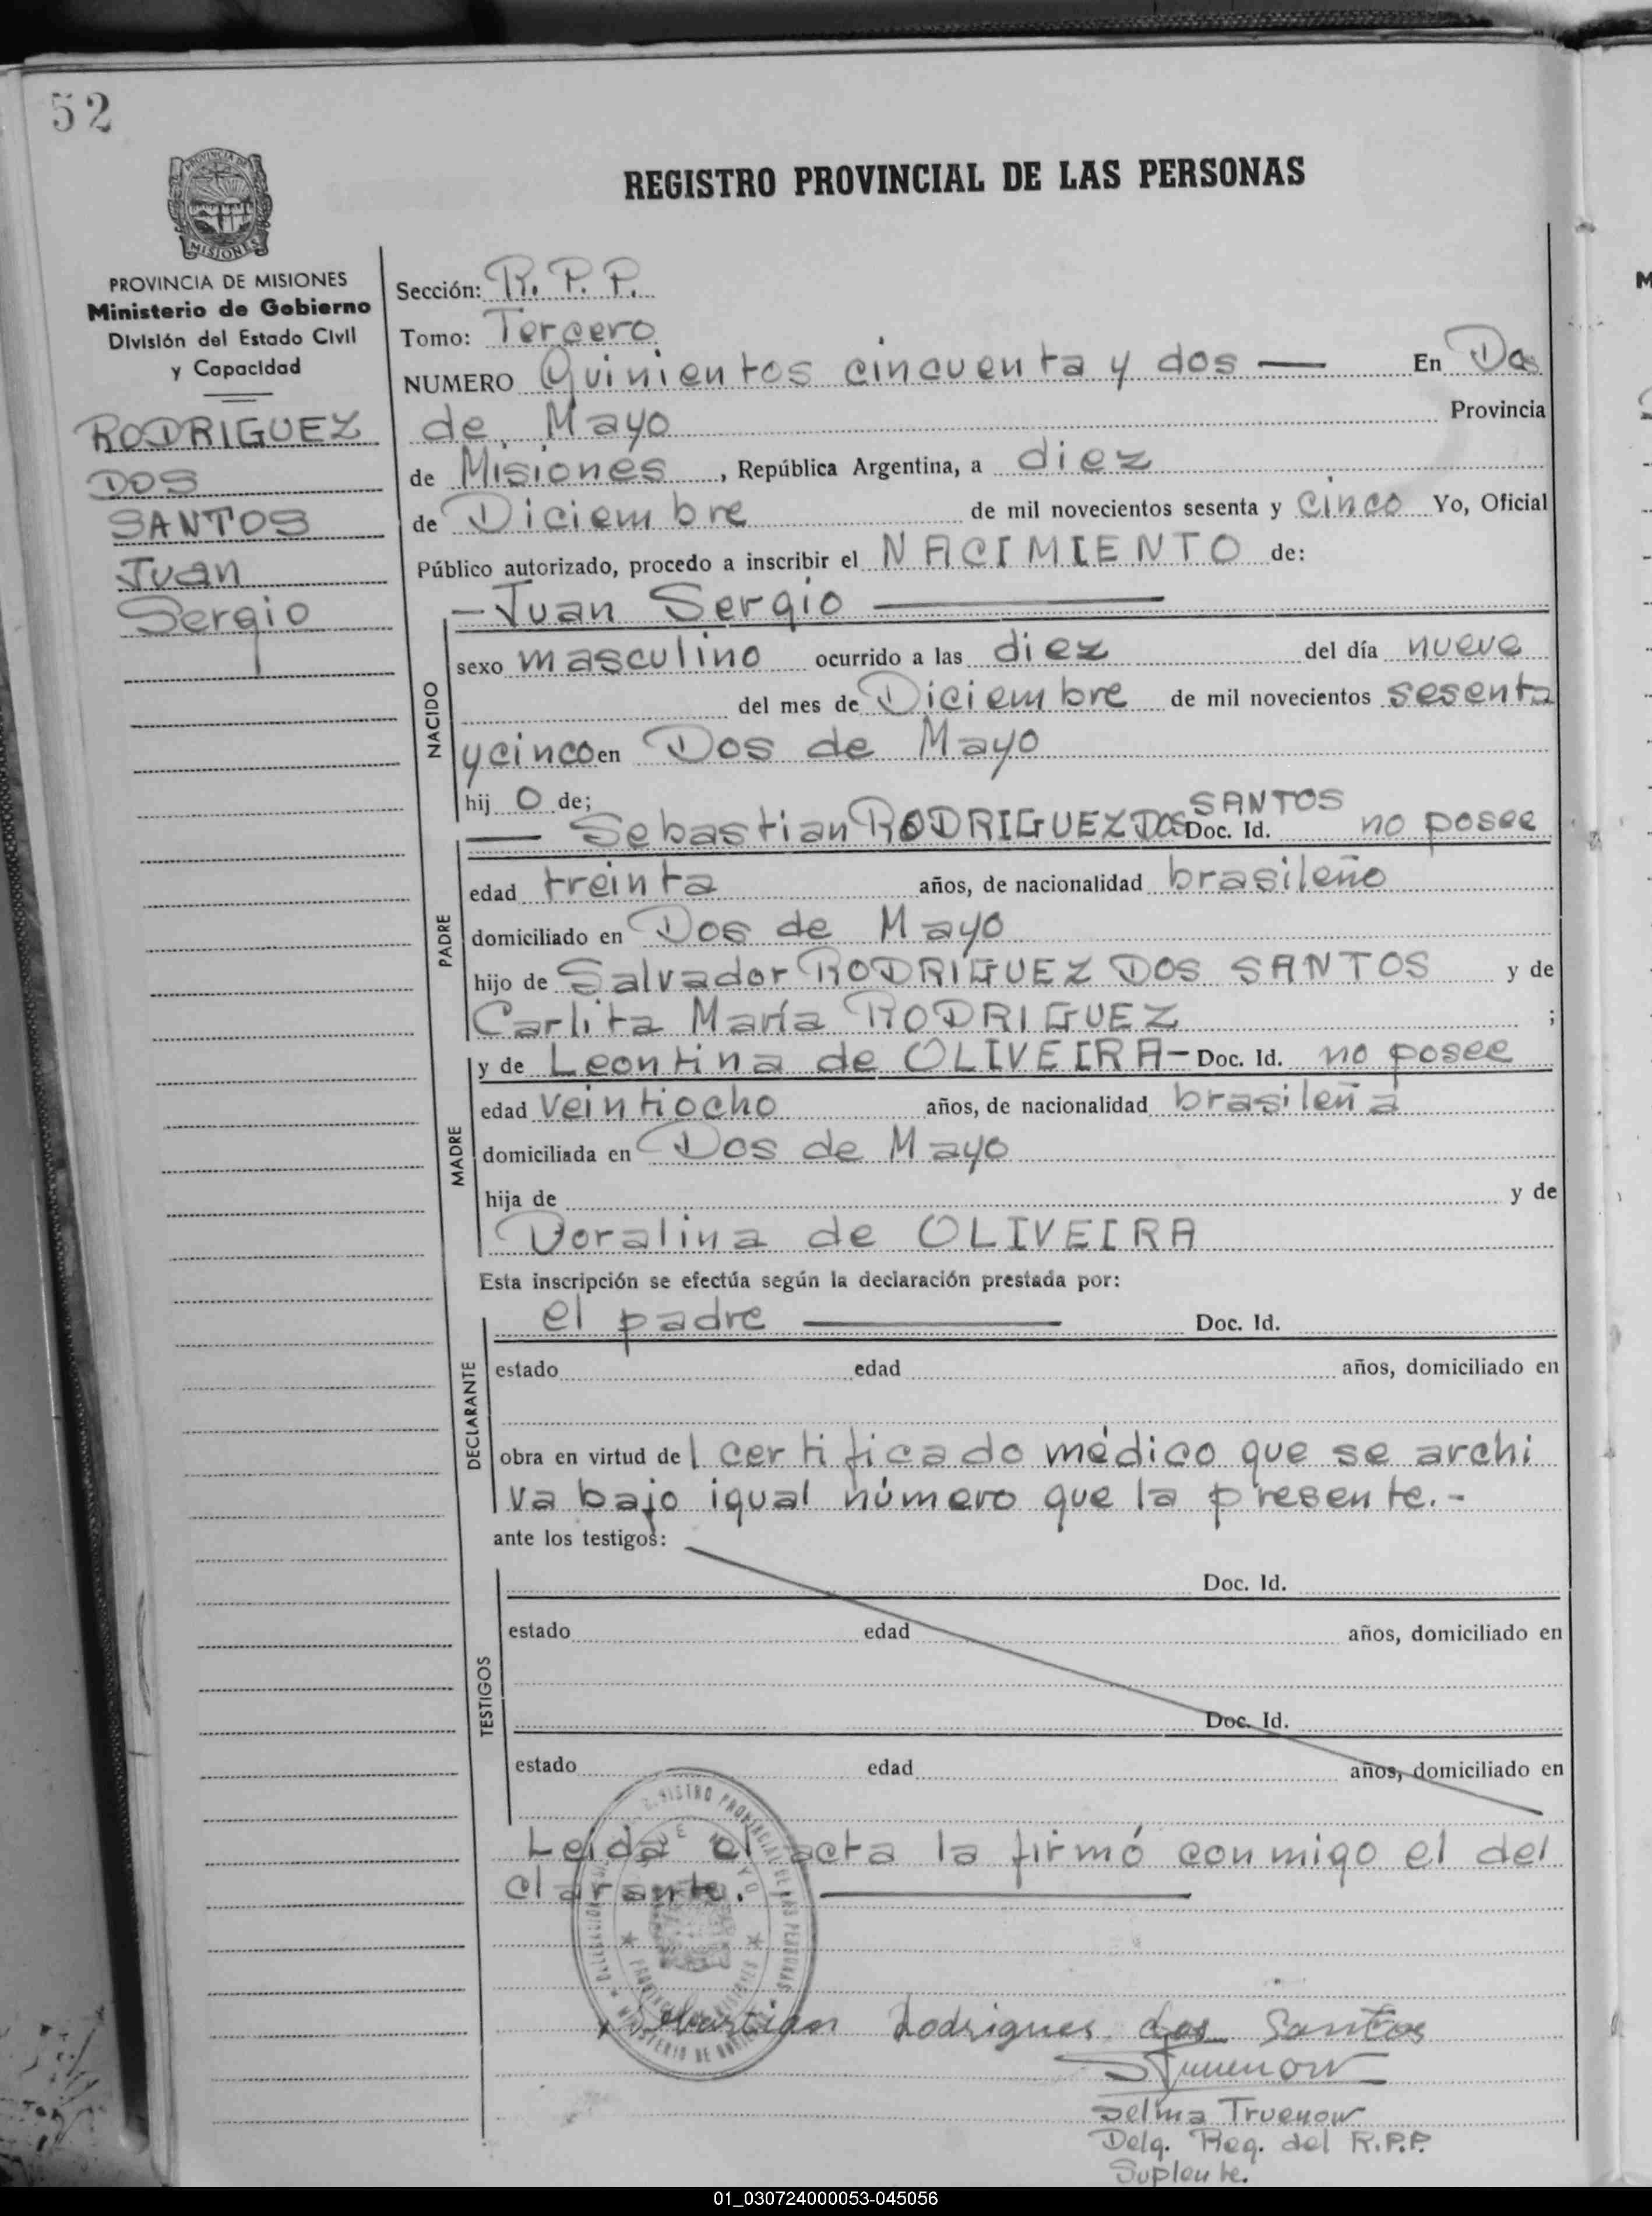 52
PROVINCIA DE
MISIONES
REGISTRO PROVINCIAL DE LAS PERSONAS
PROVINCIA DE MISIONES
Ministerio de Gobierno
División del Estado Civil
y Capacidad
RODRIGUEZ
DOS
SANTOS
Juan
Sergio
Sección: R. P. P.
Tomo: Tercero
NUMERO Quinientos cincuenta y dos — En Dos
de Mayo Provincia
de Misiones, República Argentina, a diez
de Diciembre de mil novecientos sesenta y cinco Yo, Oficial
Público autorizado, procedo a inscribir el NACIMIENTO de:
— Juan Sergio —
NACIDO
sexo masculino ocurrido a las diez del día nueve
del mes de Diciembre de mil novecientos sesenta
y cinco en Dos de Mayo
hijo de;
— Sebastian RODRIGUEZ DOS SANTOS Doc. Id. no posee
PADRE
edad treinta años, de nacionalidad brasileño
domiciliado en Dos de Mayo
hijo de Salvador RODRIGUEZ DOS SANTOS y de
Carlita María RODRIGUEZ ;
y de Leontina de OLIVEIRA - Doc. Id. no posee
MADRE
edad veintiocho años, de nacionalidad brasileña
domiciliada en Dos de Mayo
hija de y de
Doralina de OLIVEIRA
Esta inscripción se efectúa según la declaración prestada por:
el padre — Doc. Id.
DECLARANTE
estado edad años, domiciliado en
obra en virtud del certificado médico que se archi
va bajo igual número que la presente.-
ante los testigos:
TESTIGOS
Doc. Id.
estado edad años, domiciliado en
Doc. Id.
estado edad años, domiciliado en
Leida el acta la firmó conmigo el del
clarante. —
Sebastian Rodrigues dos Santos
STruenow
Selma Truenow
Delg. Reg. del R.P.P.
Suplente.
01_030724000053-045056